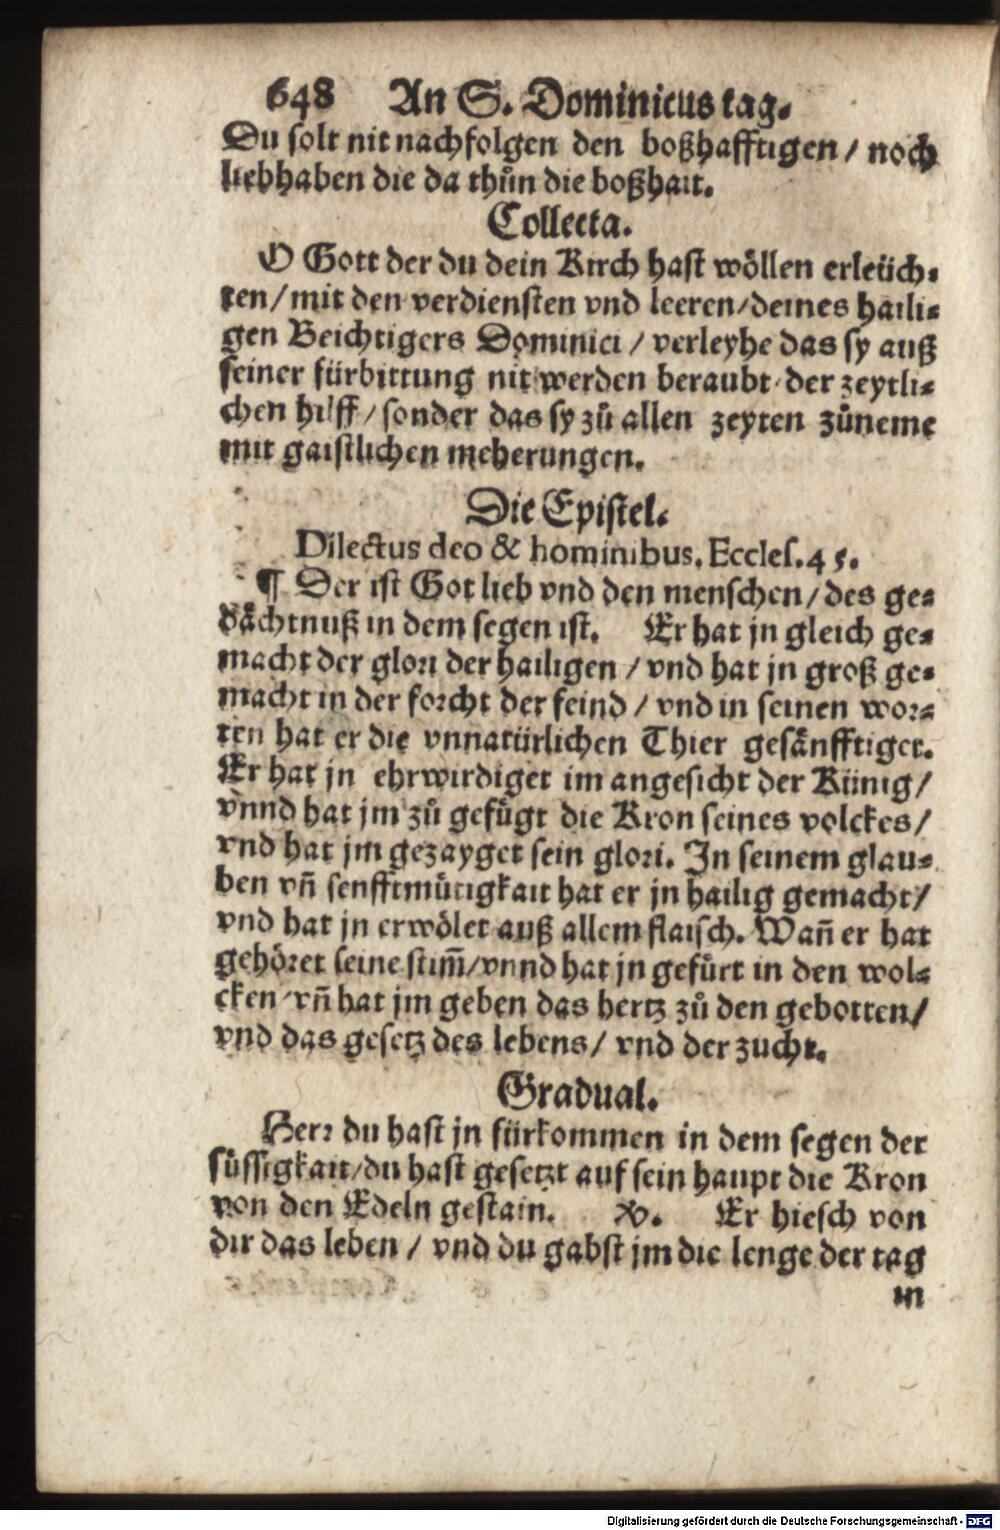 648 An S. Dominicus tag.
Du solt nit nachfolgen den boßhafftigen / noch
liebhaben die da thůn die boßhait.
Collecta.
O Gott der du dein Kirch hast wöllen erleüch-
ten / mit den verdiensten vnd leeren / deines haili-
gen Beichtigers Dominici / verleyhe das sy auß
seiner fürbittung nit werden beraubt der zeytli-
chen hilff / sonder das sy zů allen zeyten zůneme
mit gaistlichen meherungen.
Die Epistel.
Dilectus deo & hominibus. Eccles. 45.
¶ Der ist Got lieb vnd den menschen / des ge-
dåchtnuß in dem segen ist. Er hat jn gleich ge-
macht der glori der hailigen / vnd hat jn groß ge-
macht in der forcht der feind / vnd in seinen wor-
ten hat er die vnnatürlichen Thier gesånfftiget.
Er hat jn ehrwirdiget im angesicht der Künig /
vnnd hat jm zů gefügt die Kron seines volckes /
vnd hat jm gezayget sein glori. In seinem glau-
ben vñ senfftmütigkait hat er jn hailig gemacht /
vnd hat jn erwölet auß allem flaisch. Wañ er hat
gehöret seine stim̃ / vnnd hat jn gefürt in den wol-
cken / vñ hat jm geben das hertz zů den gebotten /
vnd das gesetz des lebens / vnd der zucht.
Gradual.
Herr du hast jn fürkommen in dem segen der
süssigkait / du hast gesetzt auf sein haupt die Kron
von den Edeln gestain. ℣. Er hiesch von
dir das leben / vnd du gabst jm die lenge der tag
in
Digitalisierung gefördert durch die Deutsche Forschungsgemeinschaft - DFG